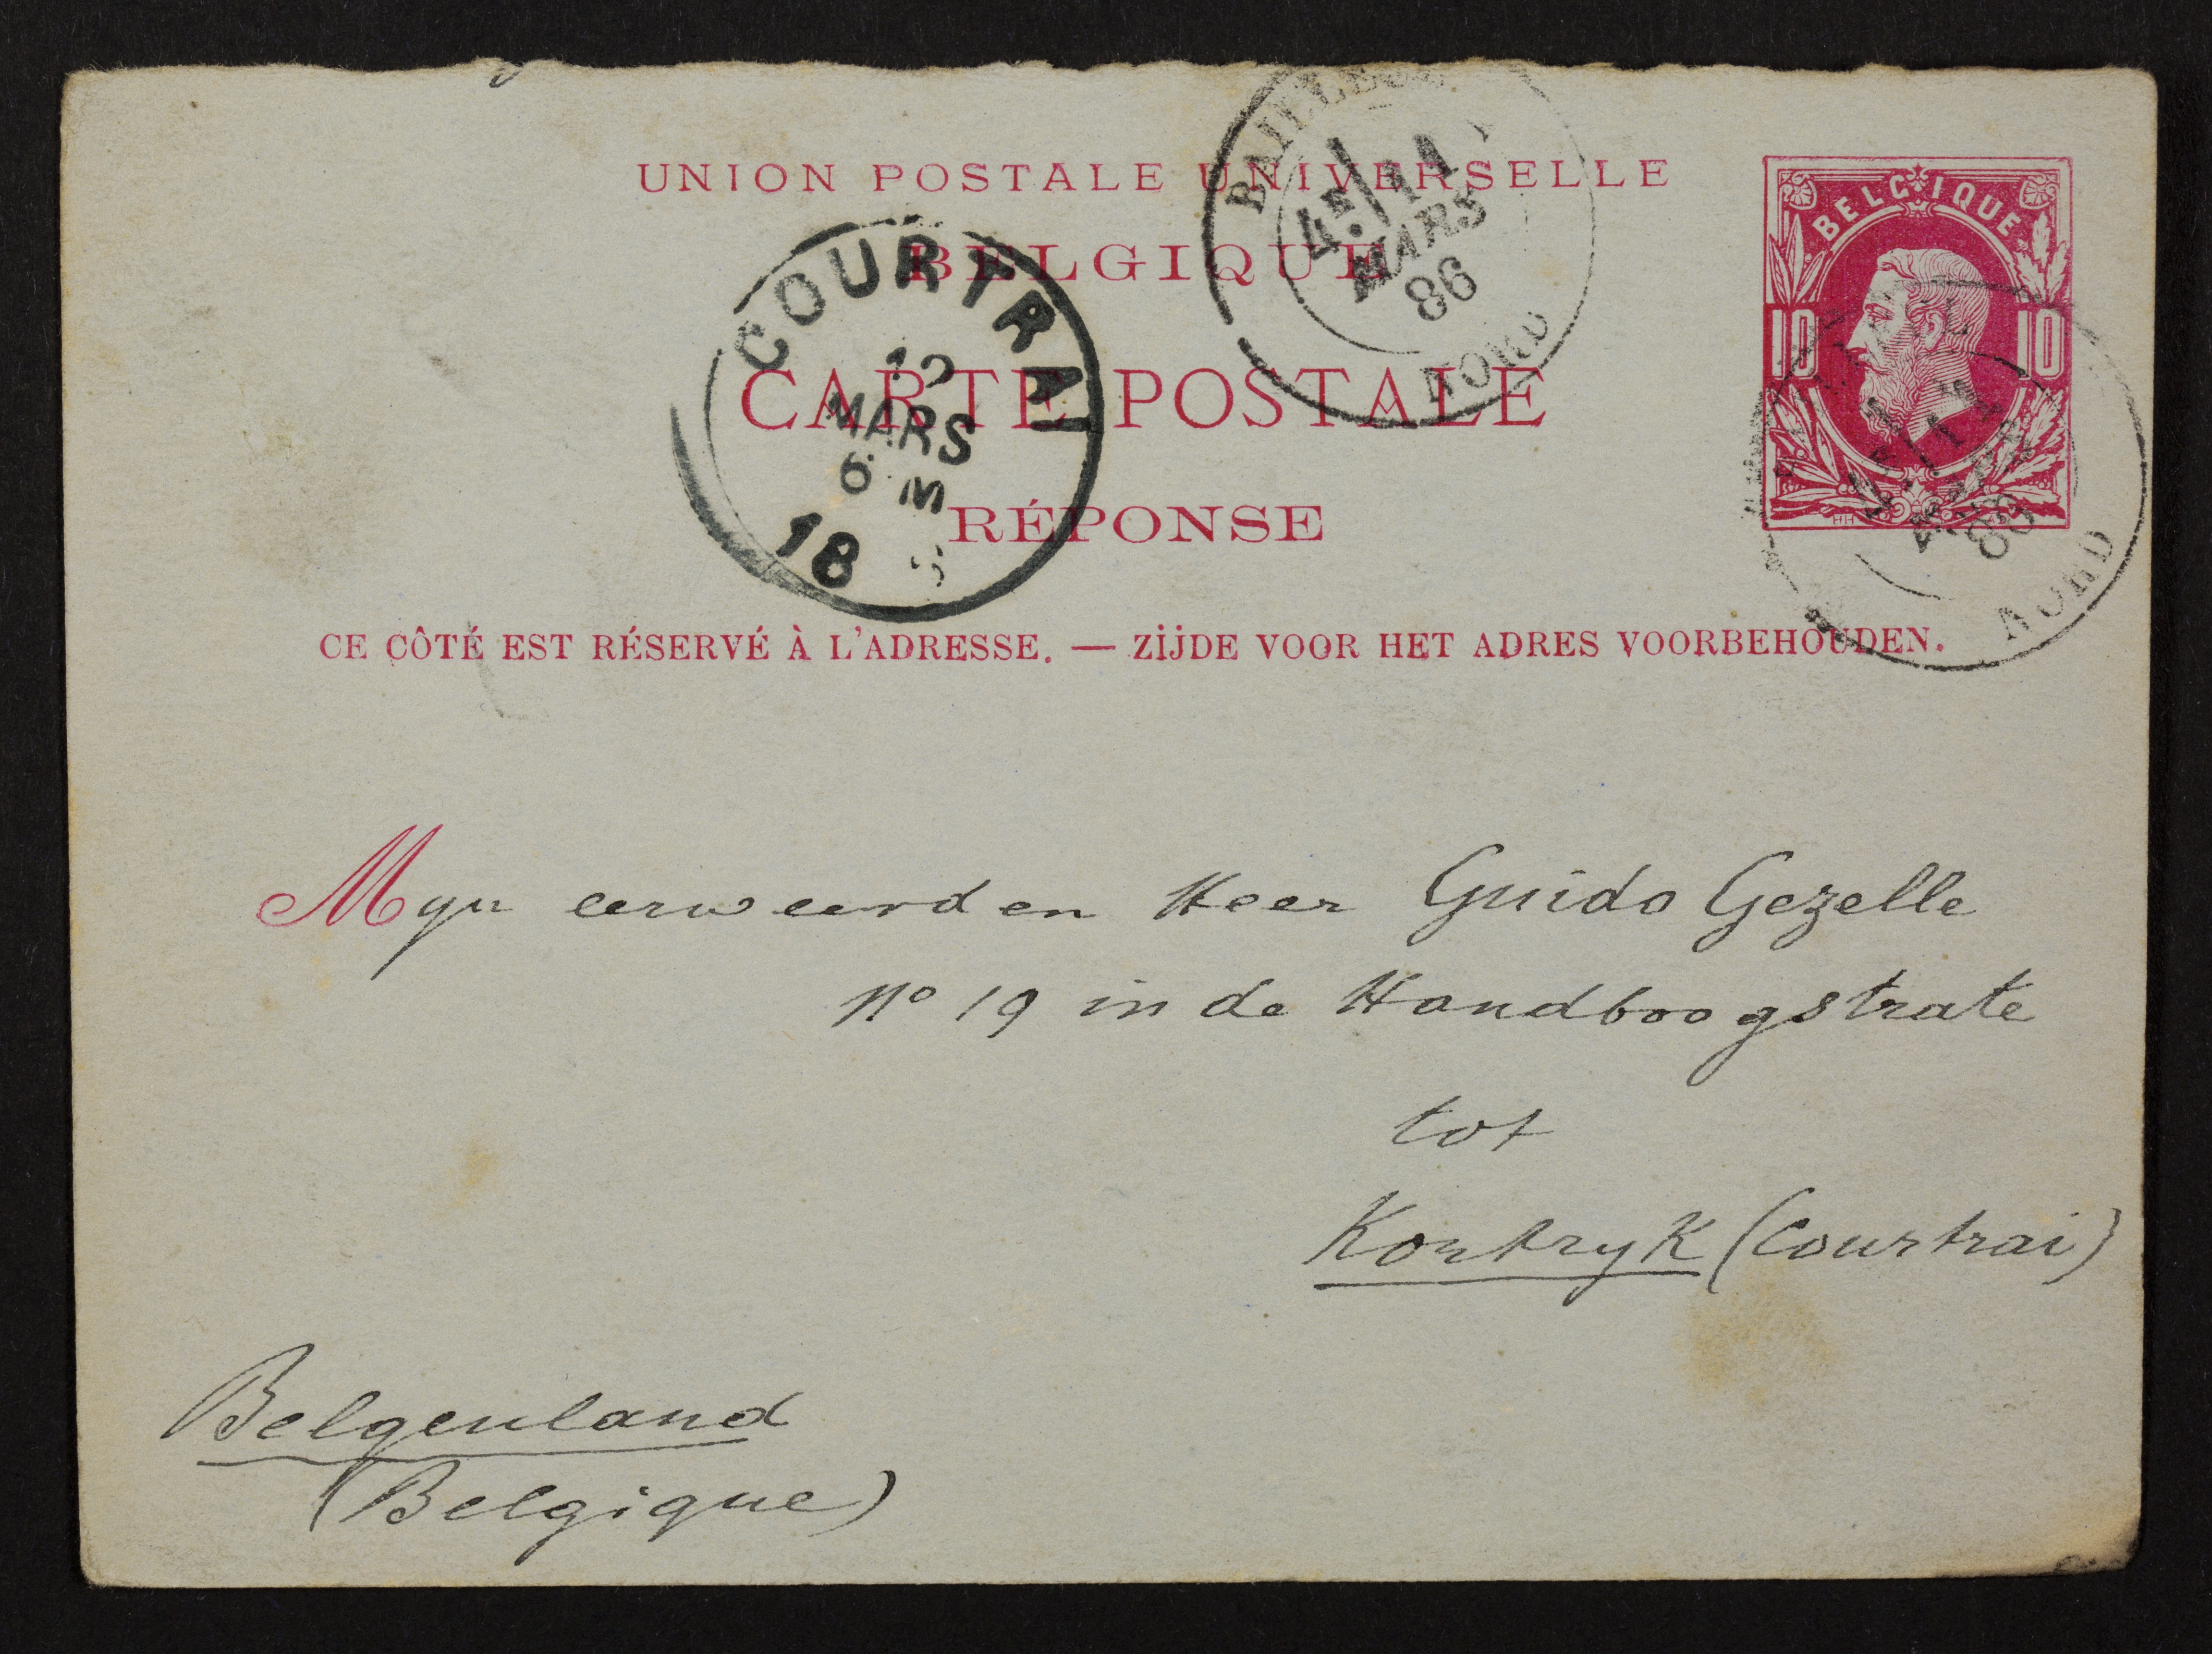 UNION POSTALE UNIVERSELLE
BELGIQUE
CARTE POSTALE
RÉPONSE
CE CÔTÉ EST RÉSERVÉ À L'ADRESSE. — ZIJDE VOOR HET ADRES VOORBEHOUDEN.
BELGIQUE
10 10
BAILLEUL
4E 11
MARS
86
NORD
COURTRAI
12
MARS
6 M
18
11
86
NORD
Myn eerweerden Heer Guido Gezelle
No 19 in de Handboogstrate
tot
Kortryk (Courtrai)
Belgenland
(Belgique)